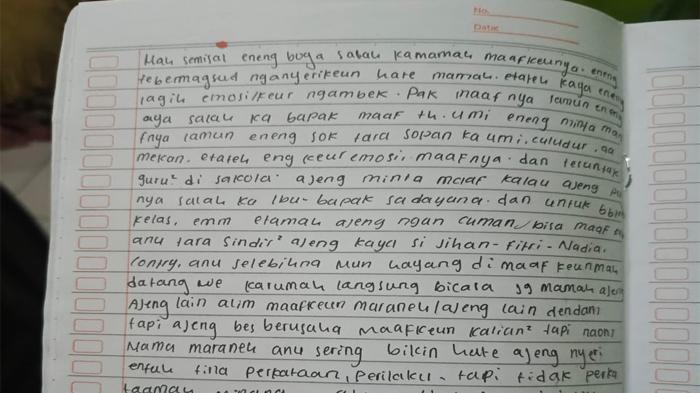 No.
Date
Mah semisal eneng boga salah kamamah maafkeunya. eneng
tebermagsud nganyerikeun hate mamah. etateh kaya eneng
lagih emosi/keur ngambek. Pak maaf nya lamun eneng
aya salah ka bapak maaf th. umi eneng minta maa
fnya lamun eneng sok tara sopan ka umi, culudur, na
mekan. etateh eng keur emosi. maafnya. dan teruntuk
guru² di sakola. ajeng minta maaf kalau ajeng pu
nya salah ka Ibu-bapak sadayana. dan untuk
kelas, emm etamah ajeng ngan cuman bisa maaf
anu tara sindir² ajeng kaya si Jihan-Fitri-Nadia.
Contry, anu selebihna mun hayang di maafkeunmah
datang we karumah langsung bicara sg mamah ajeng
Ajeng lain alim maafkeun maraneh/ajeng lain dendam
tapi ajeng bes berusaha maafkeun kalian² tapi naon
Mama maraneh anu sering bikin hate ajeng nyeri
entah tina perkataan, perilaku. tapi tidak perka